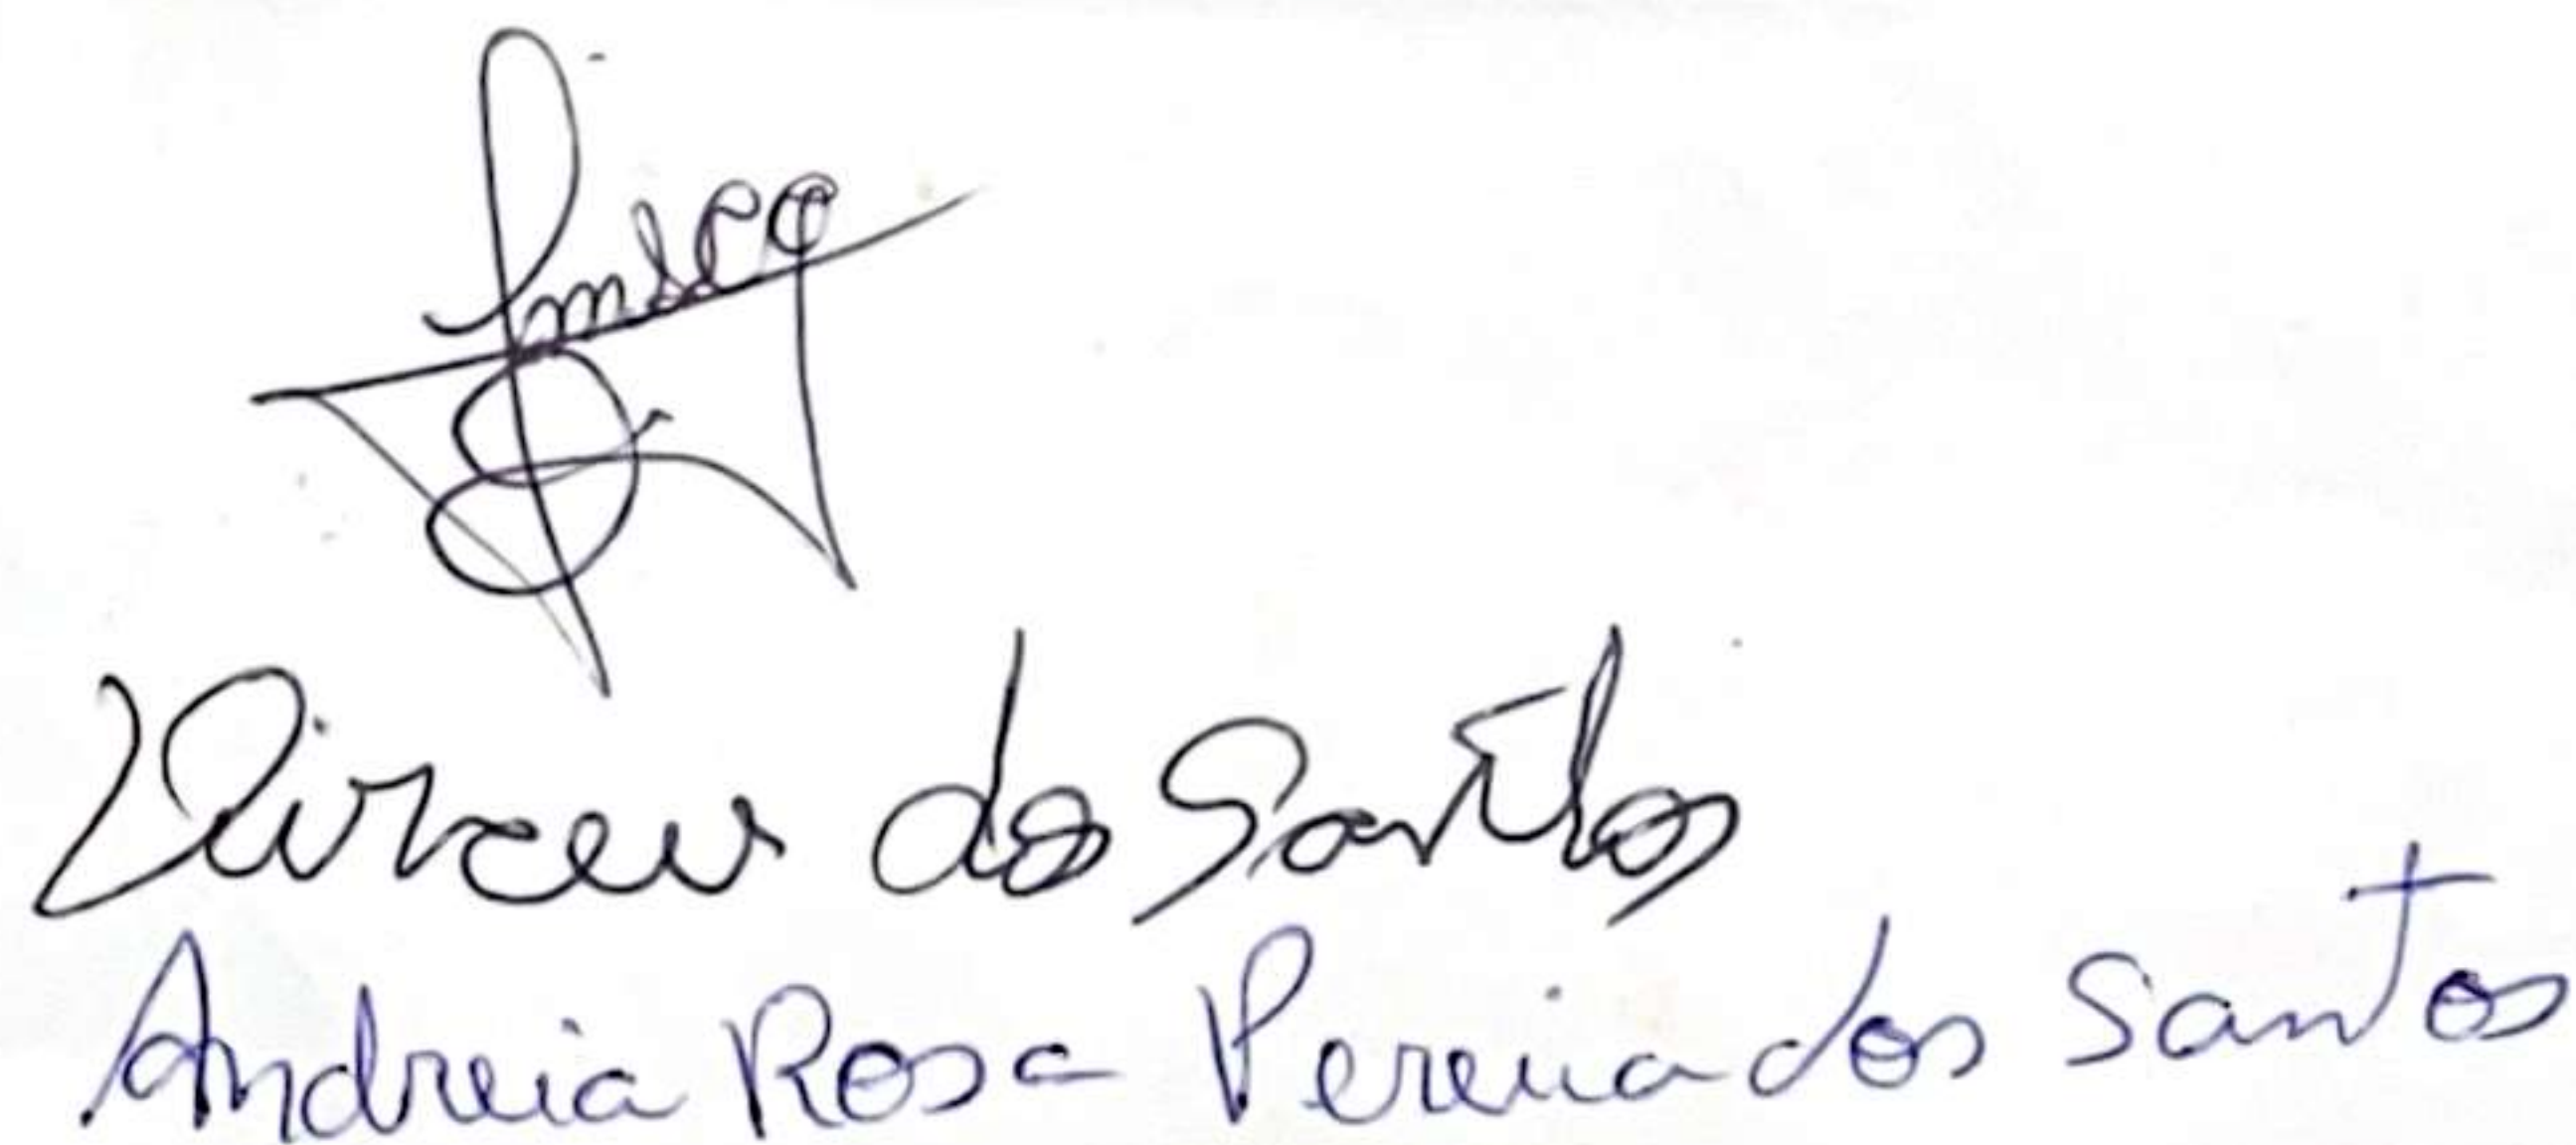 Dirceu dos Santos
Andreia Rosa Pereira dos Santos